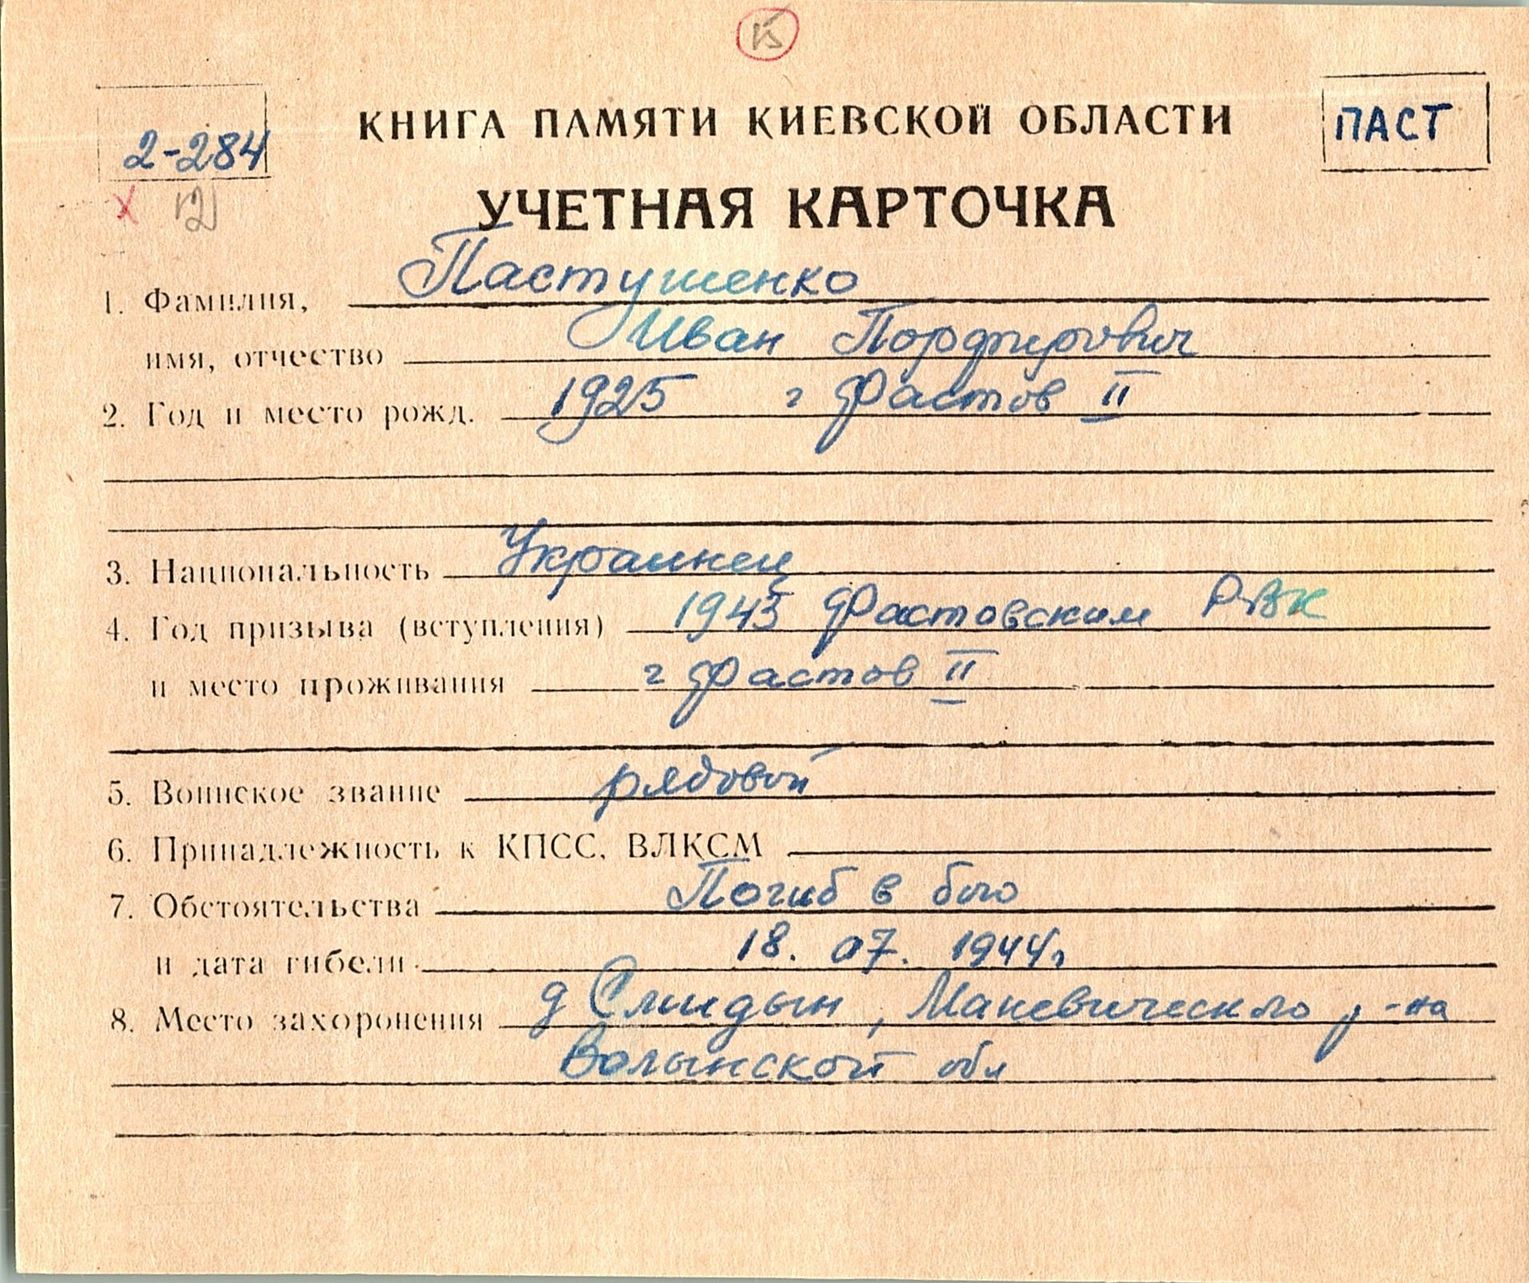 К
2-284
КНИГА ПАМЯТИ КИЕВСКОЙ ОБЛАСТИ
ПАСТ
УЧЕТНАЯ КАРТОЧКА
1. Фамилия, Пастушенко
имя, отчество Иван Порфирович
2. Год и место рожд. 1925 г Фастов II
3. Национальность Украинец
4. Год призыва (вступления) 1943 Фастовским РВК
и место проживания г Фастов II
5. Воинское звание рядовой
6. Принадлежность к КПСС, ВЛКСМ
7. Обстоятельства Погиб в бою
и дата гибели 18. 07. 1944г
8. Место захоронения д Слидын, Маневического р-на
Волынской обл